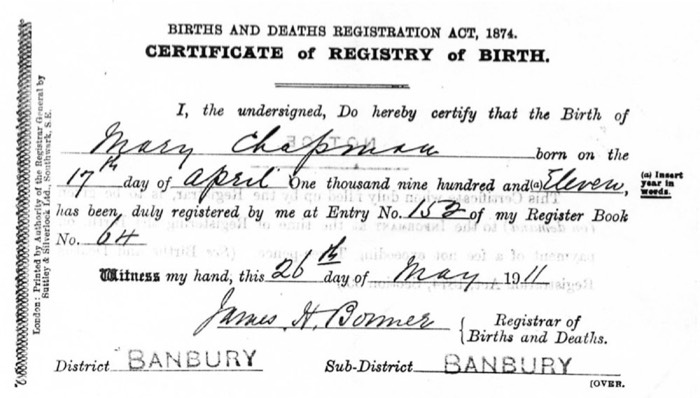 BIRTHS AND DEATHS REGISTRATION ACT, 1874.
CERTIFICATE of REGISTRY of BIRTH.
I, the undersigned, Do hereby certify that the Birth of
Mary Chapman born on the
17th day of April One thousand nine hundred and (a) Eleven,
(a) Insert
year in
words.
has been duly registered by me at Entry No. 152 of my Register Book
No. 64
Witness my hand, this 26th day of May 1911
James H. Bonner { Registrar of
Births and Deaths.
District BANBURY Sub-District BANBURY
[OVER.
London: Printed by Authority of the Registrar General by
Suttley & Silverlock Ltd., Southwark, S.E.
NOTICE